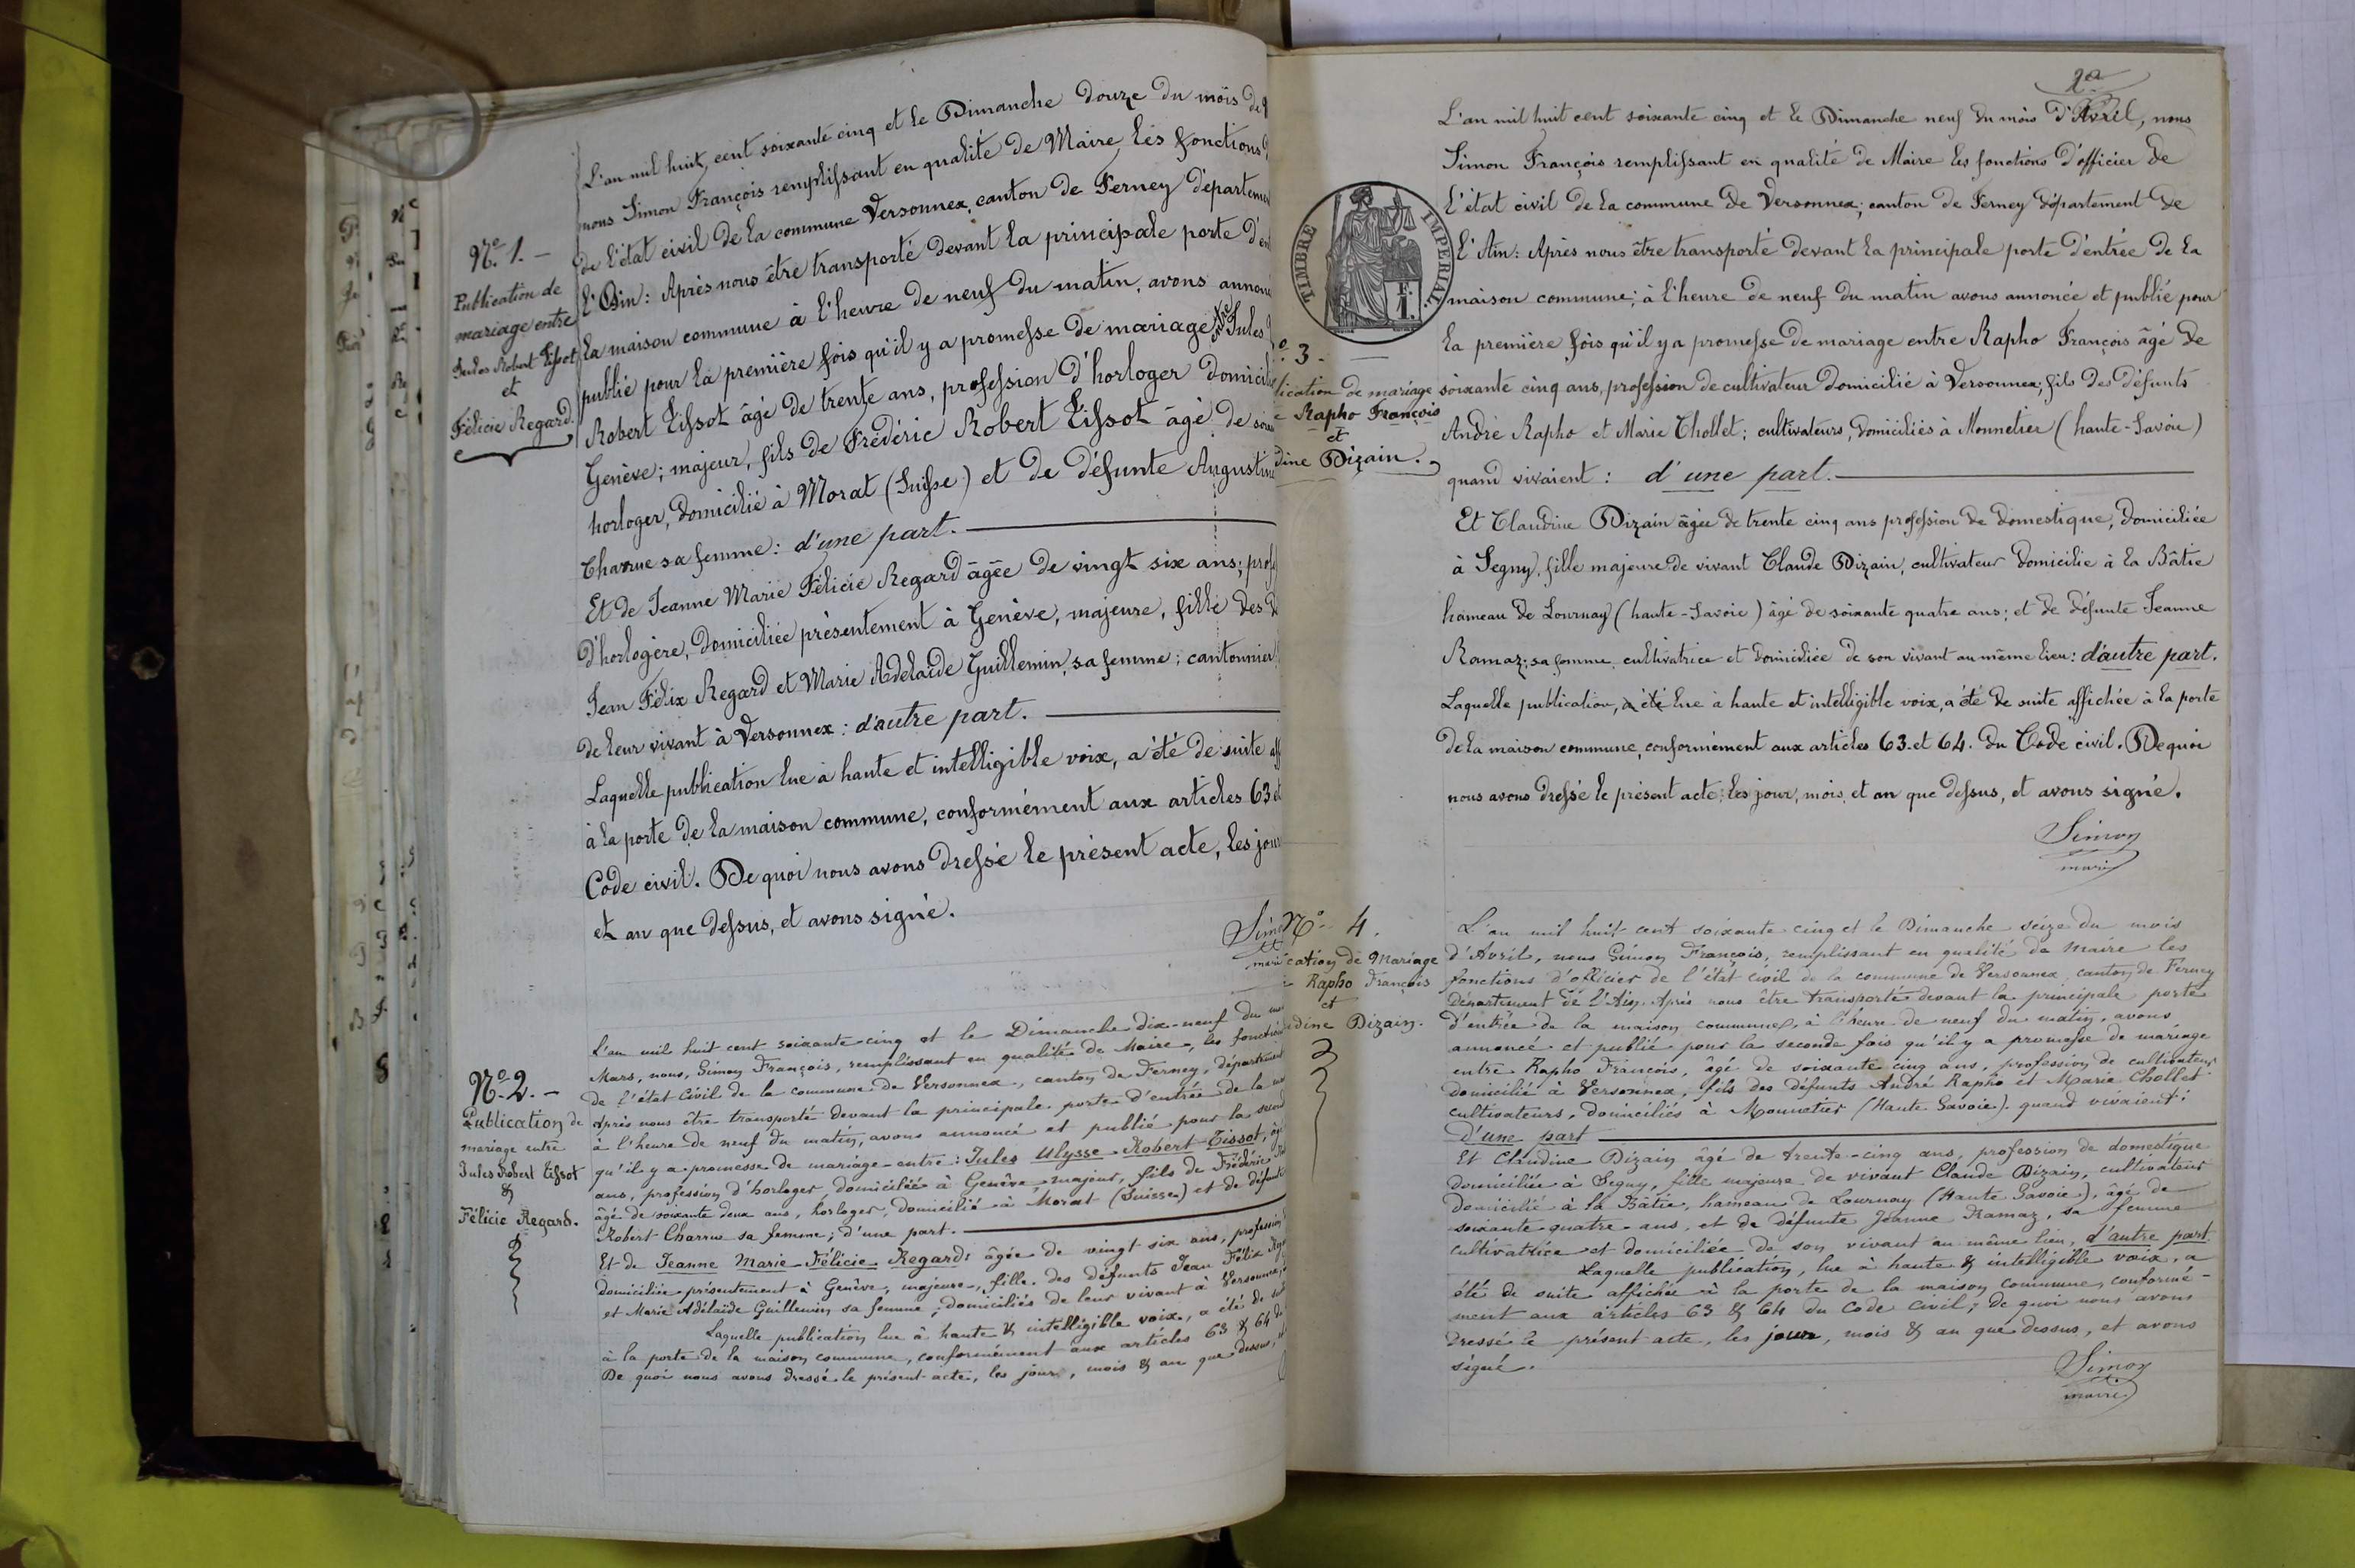 N.º 1. –
Publication de
mariage entre
Jules Robert Tissot
et
Félicie Regard.
L'an mil huit cent soixante cinq et le Dimanche douze du mois de
nous Simon François remplissant en qualité de Maire les fonctions
de l'état civil de la commune Versonnex, canton de Ferney département
l'Ain : Après nous être transporté devant la principale porte d'en
la maison commune à l'heure de neuf du matin, avons annon
publié pour la première fois qu'il y a promesse de mariage entre Jules
Robert Tissot âgé de trente ans, profession d'horloger domicili
Genève; majeur, fils de Frédéric Robert Tissot âgé de soix
horloger, domicilié à Morat (Suisse) et de défunte Augustin
Charrue sa femme : d'une part.
Et de Jeanne Marie Félicie Regard âgée de vingt six ans; prof
d'horlogère, domiciliée présentement à Genève, majeure, fille des d
Jean Félix Regard et Marie Adelaïde Guillemin, sa femme; cantonnier
de leur vivant à Versonnex : d'autre part.
Laquelle publication lue à haute et intelligible voix, a été de suite aff
à la porte de la maison commune, conformément aux articles 63 et
Code civil. De quoi nous avons dressé le présent acte, les jour
et an que dessus, et avons signé.
Sim
mair
N.º 2. –
Publication de
mariage entre
Jules Robert Tissot
&
Félicie Regard.
L'an mil huit cent soixante-cinq et le Dimanche dix-neuf du
Mars, nous, Simon François, remplissant en qualité de Maire, les fonction
de l'état civil de la commune de Versonnex, canton de Ferney, département
Après nous être transporté devant la principale porte d'entrée de la
à l'heure de neuf du matin, avons annoncé et publié pour la second
qu'il y a promesse de mariage entre : Jules Ulysse Robert Tissot, âg
ans, profession d'horloger, domicilié à Genève majeur, fils de Frédéric
âgé de soixante deux ans, horloger, domicilié à Morat (Suisse) et de défunte
Robert Charrue sa femme; d'une part.
Et de Jeanne Marie-Félicie Regard : âgée de vingt six ans, profession
domiciliée présentement à Genève, majeure, fille des défunts Jean Félix Reg
et Marie Adélaïde Guillemin sa femme; domiciliés de leur vivant à Versonnex,
Laquelle publication, lue à haute & intelligible voix, a été de
à la porte de la maison commune, conformément aux articles 63 & 64 d
De quoi nous avons dressé le présent acte, les jour, mois & an que dessus,
TIMBRE IMPÉRIAL
F.
1.
º 3 –
lication de mariage
Rapho François
et
dine Dizain.
L'an mil huit cent soixante cinq et le Dimanche neuf du mois d'Avril, nous
Simon François remplissant en qualité de Maire les fonctions d'officier de
l'état civil de la commune de Versonnex; canton de Ferney département de
l'Ain : Après nous être transporté devant la principale porte d'entrée de la
maison commune; à l'heure de neuf du matin avons annoncé et publié pour
la première fois qu'il y a promesse de mariage entre Rapho François âgé de
soixante cinq ans, profession de cultivateur domicilié à Versonnex; fils des défunts
André Rapho et Marie Chollet; cultivateurs, domiciliés à Monnetier (haute-Savoie)
quand vivaient : d'une part.
Et Claudine Dizain âgée de trente cinq ans profession de domestique, domiciliée
à Segny, fille majeure de vivant Claude Dizain, cultivateur domicilié à la Bâtie
hameau de Lournay (haute-Savoie) âgé de soixante quatre ans; et de défunte Jeanne
Ramaz; sa femme cultivatrice et domiciliée de son vivant au même lieu : d'autre part.
Laquelle publication, a été lue à haute et intelligible voix, a été de suite affichée à la porte
de la maison commune, conformément aux articles 63. et 64. du Code civil. De quoi
nous avons dressé le présent acte, les jour, mois, et an que dessus, et avons signé.
Simon
maire
Nº 4.
cation de Mariage
Rapho François
et
dine Dizain.
L'an mil huit cent soixante cinq et le Dimanche seize du mois
d'Avril, nous Simon François, remplissant en qualité de Maire les
fonctions d'officier de l'état civil de la commune de Versonnex, canton de Ferney
département de l'Ain. Après nous être transporté devant la principale porte
d'entrée de la maison commune, à l'heure de neuf du matin, avons
annoncé et publié pour la seconde fois qu'il y a promesse de mariage
entre Rapho François, âgé de soixante cinq ans, profession de cultivateur
domicilié à Versonnex, fils des défunts André Rapho et Marie Chollet
cultivateurs, domiciliés à Monnetier (Haute Savoie). quand vivaient :
D'une part
Et Claudine Dizain âgé de trente-cinq ans, profession de domestique
domiciliée à Segny, fille majeure de vivant Claude Dizain, cultivateur
domicilié à la Bâtie, hameau de Lournay (Haute Savoie), âgé de
soixante quatre-ans, et de défunte Jeanne Ramaz, sa femme
cultivatrice et domiciliée de son vivant au même lieu, d'autre part.
Laquelle publication, lue à haute & intelligible voix, a
été de suite affichée à la porte de la maison commune, conformé-
ment aux articles 63 & 64 du Code civil; de quoi nous avons
dressé le présent acte, les jour, mois & an que dessus, et avons
signé.
Simon
maire